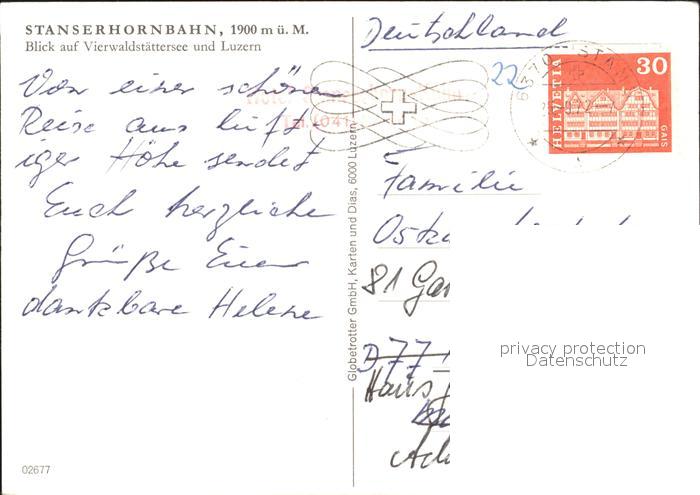 STANSERHORNBAHN, 1900 m ü. M.
Blick auf Vierwaldstättersee und Luzern
Von einer schönen
Reise aus luft
iger Höhe sendet
Euch herzliche
Grüße Eure
dankbare Helene
02677
Globetrotter GmbH, Karten und Dias, 6000 Luzern
Deutschland
22
6370 STANS
HELVETIA
30
GAIS
Familie
81 Gar
D 77
Hans
privacy protection
Datenschutz